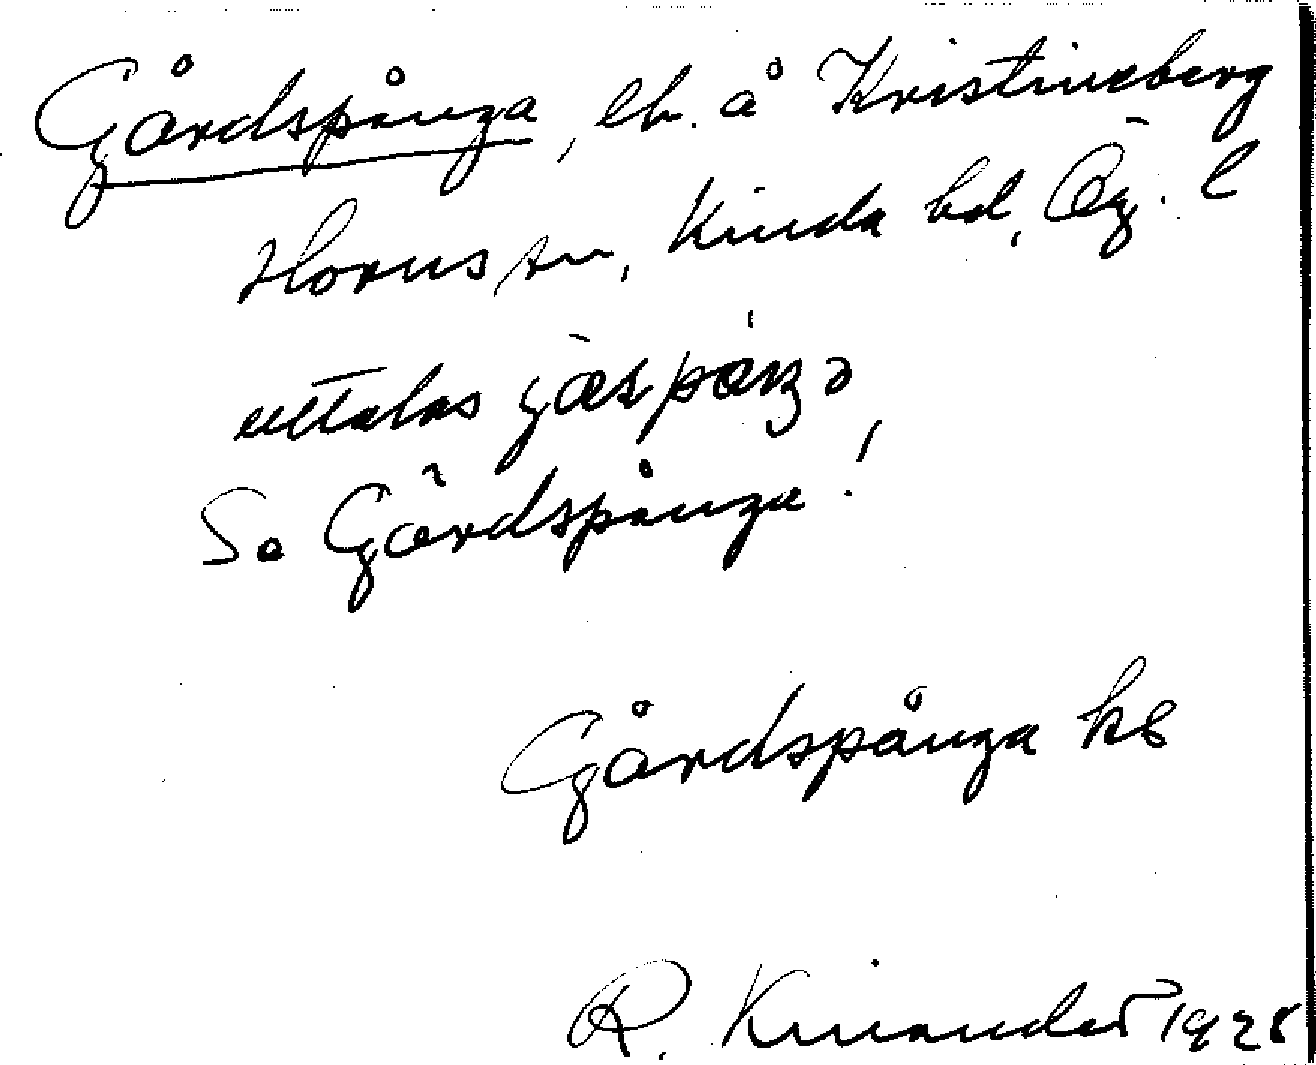 Gårdspånga, lh. å Kristineberg
Horns sn, Kinda hd, Ög. l
uttalas
So Gårdspånga!
Gårdspånga ks
R. Kinander 1928